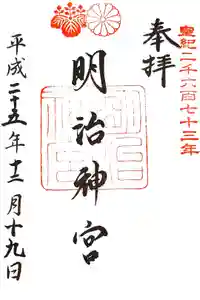 皇紀二千六百七十三年
奉拝
明治神宮
平成二十五年十二月十九日